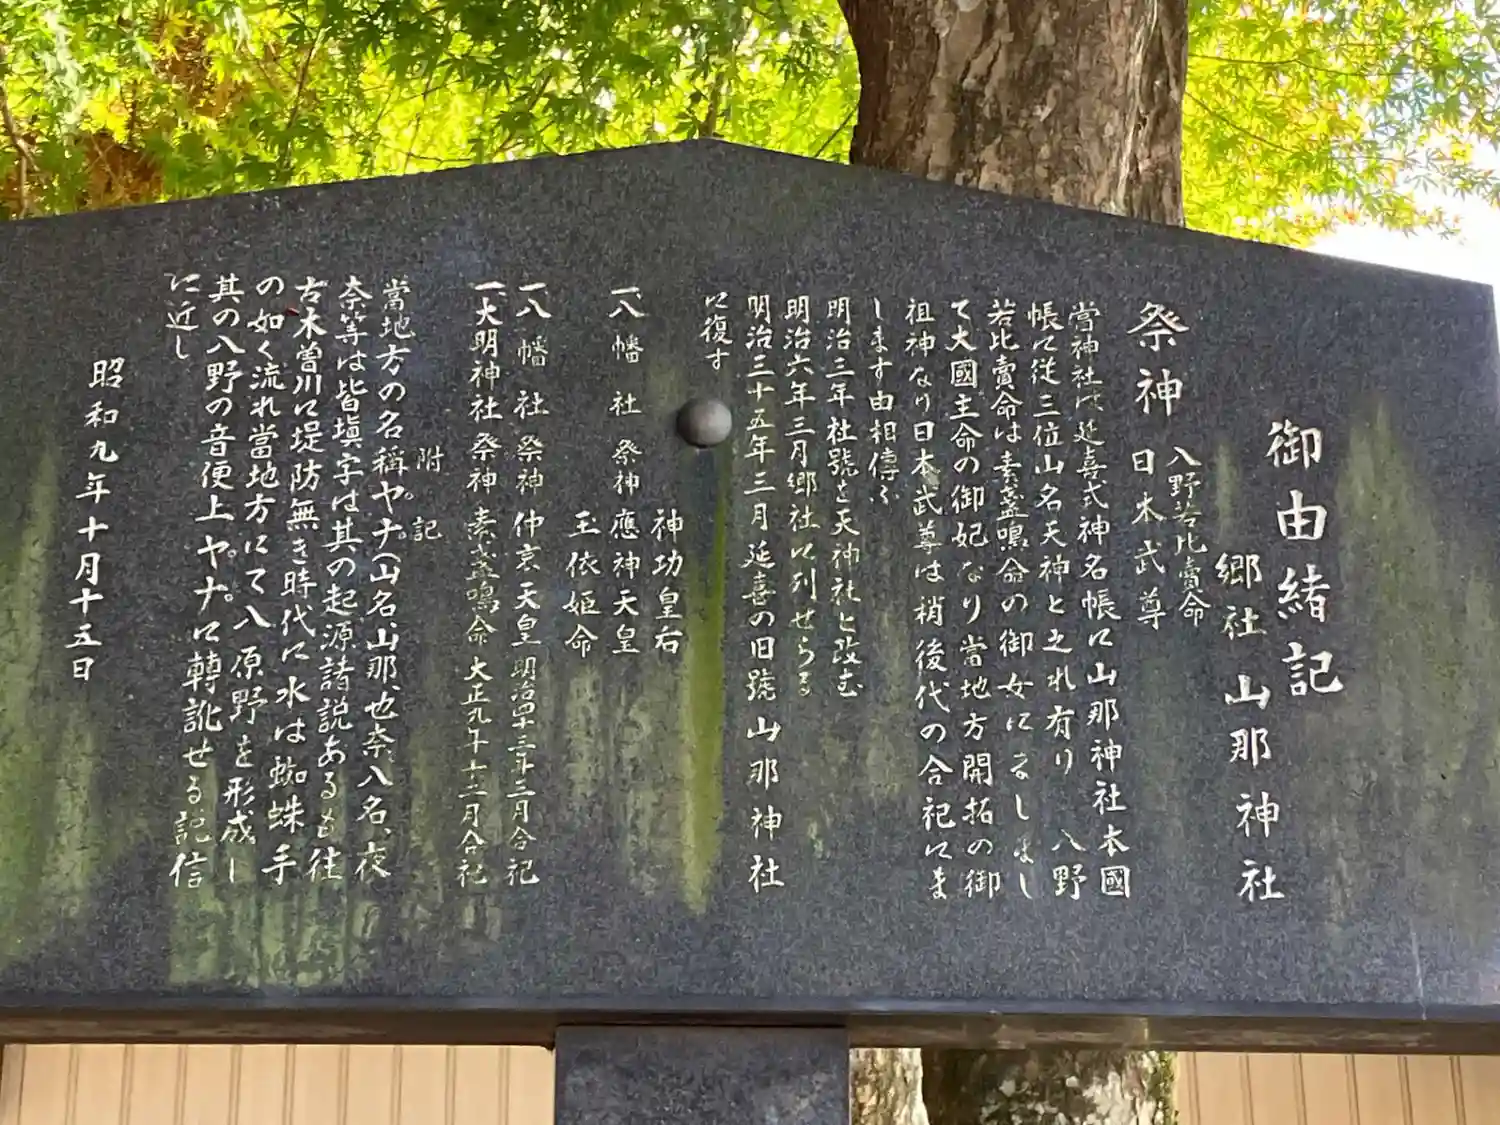 御由緒記
郷社 山那神社
祭神 八野若比賣命
日本武尊
當神社は延喜式神名帳に山那神社本國
帳に従三位山名天神と之れ有り 八野
若比賣命は素盞鳴命の御女にましまし
て大國主命の御妃なり當地方開拓の御
祖神なり日本武尊は稍後代の合祀にま
します由相傳ふ
明治三年社號を天神社と改む
明治六年三月郷社に列せらる
明治三十五年三月延喜の旧號山那神社
に復す
神功皇右
一、八幡社 祭神 應神天皇
玉依姫命
一、八幡社 祭神 仲哀天皇 明治四十三年三月合祀
一、大明神社 祭神 素盞鳴命 大正九年十二月合祀
附記
當地方の名稱ヤナ(山名、山那、也奈、八名、夜
奈等は皆塡字は其の起源諸説あるも往
古木曽川に堤防無き時代に水は蜘蛛手
の如く流れ當地方にて八原野を形成し
其の八野の音便上ヤナに轉訛せる記信
に近し
昭和九年十月十五日